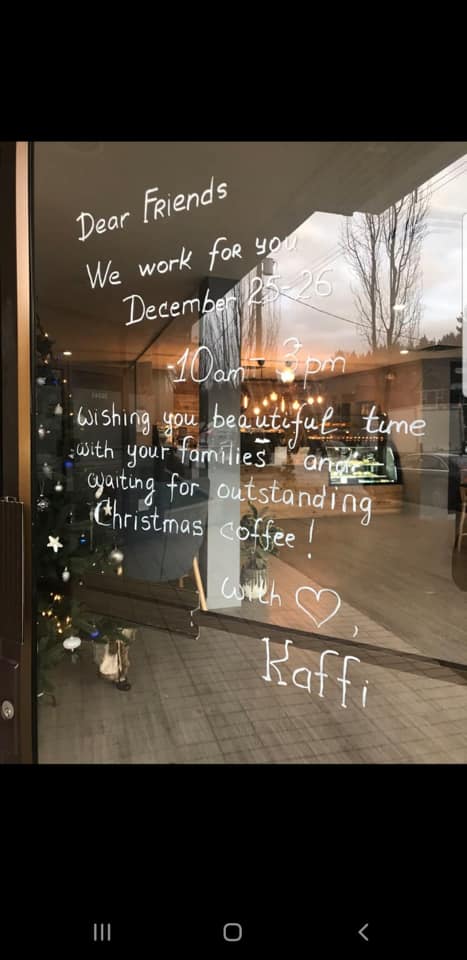 Dear Friends
We work for you
December 25-26
10am - 3pm
Wishing you beautiful time
with your families and
waiting for outstanding
Christmas coffee!
with ♡,
Kaffi